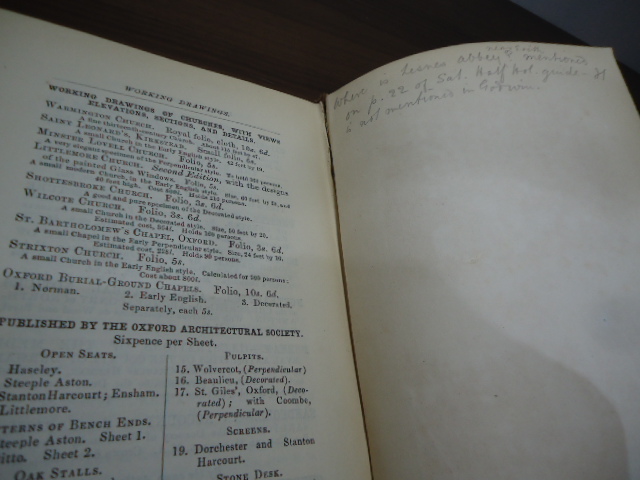 WORKING DRAWINGS.
WORKING DRAWINGS OF CHURCHES, WITH VIEWS
ELEVATIONS, SECTIONS, AND DETAILS.
WARMINGTON CHURCH. Royal folio, cloth, 10s. 6d.
A fine thirteenth-century Church. About 115 feet by 47.
SAINT LEONARD'S, KIRKSTEAD. Small folio, 5s.
A small Church in the Early English style. 42 feet by 19.
MINSTER LOVELL CHURCH. Folio, 5s.
A very elegant specimen of the Perpendicular style. To hold 350 persons.
LITTLEMORE CHURCH. Second Edition, with the designs
of the painted Glass Windows. Folio, 5s.
A small modern Church, in the Early English style. Size, 60 feet by 25, and
40 feet high. Cost 800l. Holds 210 persons.
SHOTTESBROKE CHURCH. Folio, 3s. 6d.
A good and pure specimen of the Decorated style.
WILCOTE CHURCH. Folio, 3s. 6d.
A small Church in the Decorated style. Size, 50 feet by 20.
Estimated cost, 364l. Holds 160 persons.
ST. BARTHOLOMEW'S CHAPEL, OXFORD. Folio, 3s. 6d.
A small Chapel in the Early Perpendicular style. Size, 24 feet by 16.
Estimated cost, 228l. Holds 90 persons.
STRIXTON CHURCH. Folio, 5s.
A small Church in the Early English style. Calculated for 200 persons:
Cost about 800l.
OXFORD BURIAL-GROUND CHAPELS. Folio, 10s. 6d.
1. Norman. 2. Early English. 3. Decorated.
Separately, each 5s.
PUBLISHED BY THE OXFORD ARCHITECTURAL SOCIETY.
Sixpence per Sheet.
OPEN SEATS.
Haseley.
Steeple Aston.
Stanton Harcourt; Ensham.
Littlemore.
TERNS OF BENCH ENDS.
teeple Aston. Sheet 1.
itto. Sheet 2.
OAK STALLS.
PULPITS.
15. Wolvercot, (Perpendicular)
16. Beaulieu, (Decorated).
17. St. Giles', Oxford, (Deco-
rated); with Coombe,
(Perpendicular).
SCREENS.
19. Dorchester and Stanton
Harcourt.
STONE DESK.
near
Where is Lesnes abbey mentioned
on p. 22 of Sat. Half Hol. guide. It
is not mentioned in